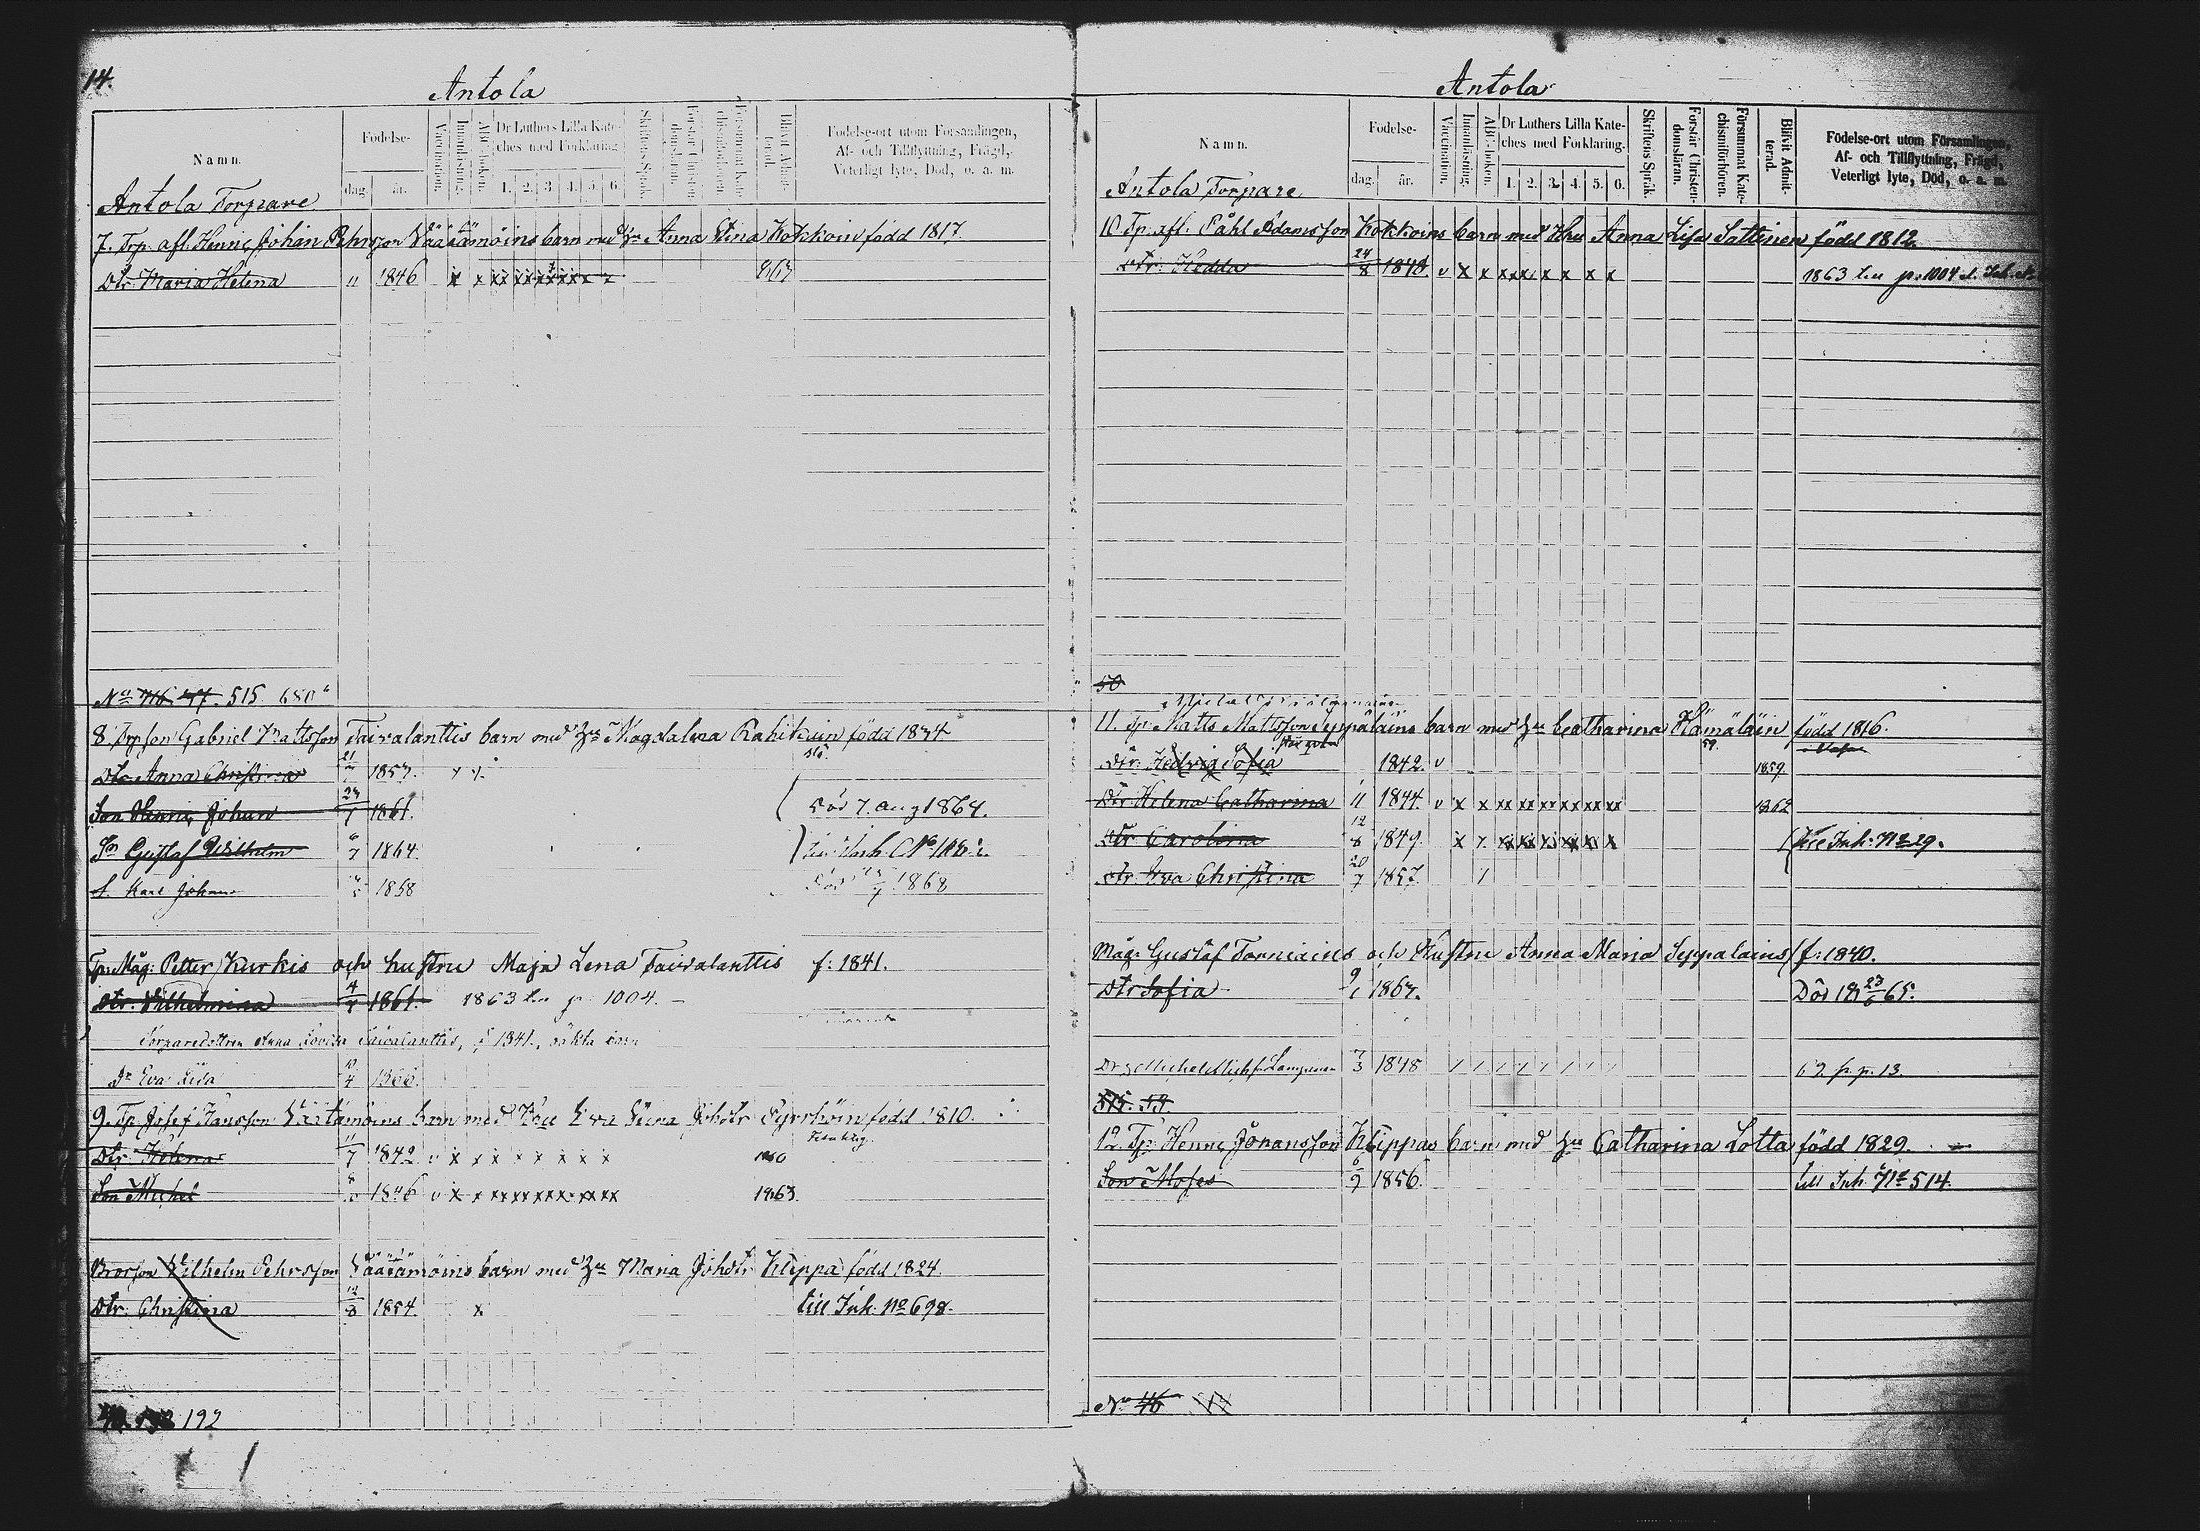 14.
Antola
Namn.
Födelse-
dag.
år.
Vaccination.
Innanläsning.
ABC-boken.
Dr Luthers Lilla Kate-
ches med Förklaring
1. 2. 3. 4. 5. 6.
Skriftens Språk.
Förstår Christen-
domsläran.
Försummat Kate-
chismiförhören.
Blifvit Admit-
terad.
Födelse-ort utom Församlingen,
Af- och Tillflyttning, Frägd,
Veterligt lyte, Död, o. a. m.
Antola Torpare
7. Trp. afl. Henric Johan Pehrsson Väätämöins barn med Hu Anna Stina Kokkoin född 1817
Dtr Maria Helena " 1846 x x xx xx xx xx x x
No 716 47. 515 680
8 Trp son Gabriel Mattsson Taivalanttis barn med Hu Magdalena Rahikain född 1834
Dtr Anna Christina 1857.
Son Henric Johan 1861. Död 7. Aug 1864.
Son Gustaf Wilhelm 1864
S. Karl Johan 1858 1868
Tp: Måg: Petter Kurkis och hustru Maja Lena Taivalanttis f: 1841.
Dtr. Wilhelmina 4/4 1861. 1863 p 1004.
Torparedottren Anna Lovisa Taivalanttis, f 1841, oäkta barn
Dr Eva Lisa 1866.
9. Tp. Josef Hansson Väätämöins barn med Hu Eva Stina Johdtr Tyrrhöin född 1810.
Dtr: Helena 11/7 1842 v x x x x x x x x 1860
Son Michel 1846 v x x xx xx xx xx xx 1863
Brorson Wilhelm Pehrsson Väätämöins barn med Hu Maria Johdtr Kleppa född 1824.
Dtr. Christina 12/8 1854. x till Inh. No 698.
192
Antola
Namn.
Födelse-
dag.
år.
Vaccination.
Innanläsning.
ABC-boken.
Dr Luthers Lilla Kate-
ches med Förklaring.
1. 2. 3. 4. 5. 6.
Skriftens Språk.
Förstår Christen-
domsläran.
Försummat Kate-
chismiförhören.
Blifvit Admit-
terad.
Födelse-ort utom Församlingen,
Af- och Tillflyttning, Frägd,
Veterligt lyte, Död, o. a. m.
Antola Torpare
10 Tp. afl. Påhl Adamsson Kokkoins barn med Hu Anna Lisa Sattinen född 1812.
Dtr. Hedda 24/8 1848. v x x xxx x x x x 1863 p: 1004
50
11. Tp: Matts Mattsson Seppäläins barn med Hu Catharina Hämäläin född 1816.
Dtr. Hedvig Sofia 1842. v 1859
Dtr Helena Catharina 11 1844. v x x xx xx xx xx xx xx 1862
Dtr Carolina 12/8 1849. x x xx xx xx xx x x Inh: No 29.
Dtr. Eva Christina 20/7 1857
Måg. Gustaf Torniains och Hustru Anna Maria Seppäläins f: 1840.
Dtr Sofia 1867. Död 18 23/6 65.
7/3 1848 62 p. p. 13.
515. 59.
12. Tp. Henric Johansson Kleppas barn med Hu Catharina Lotta född 1829.
Son Moses 6/9 1856. till Inh. No 514.
No 46